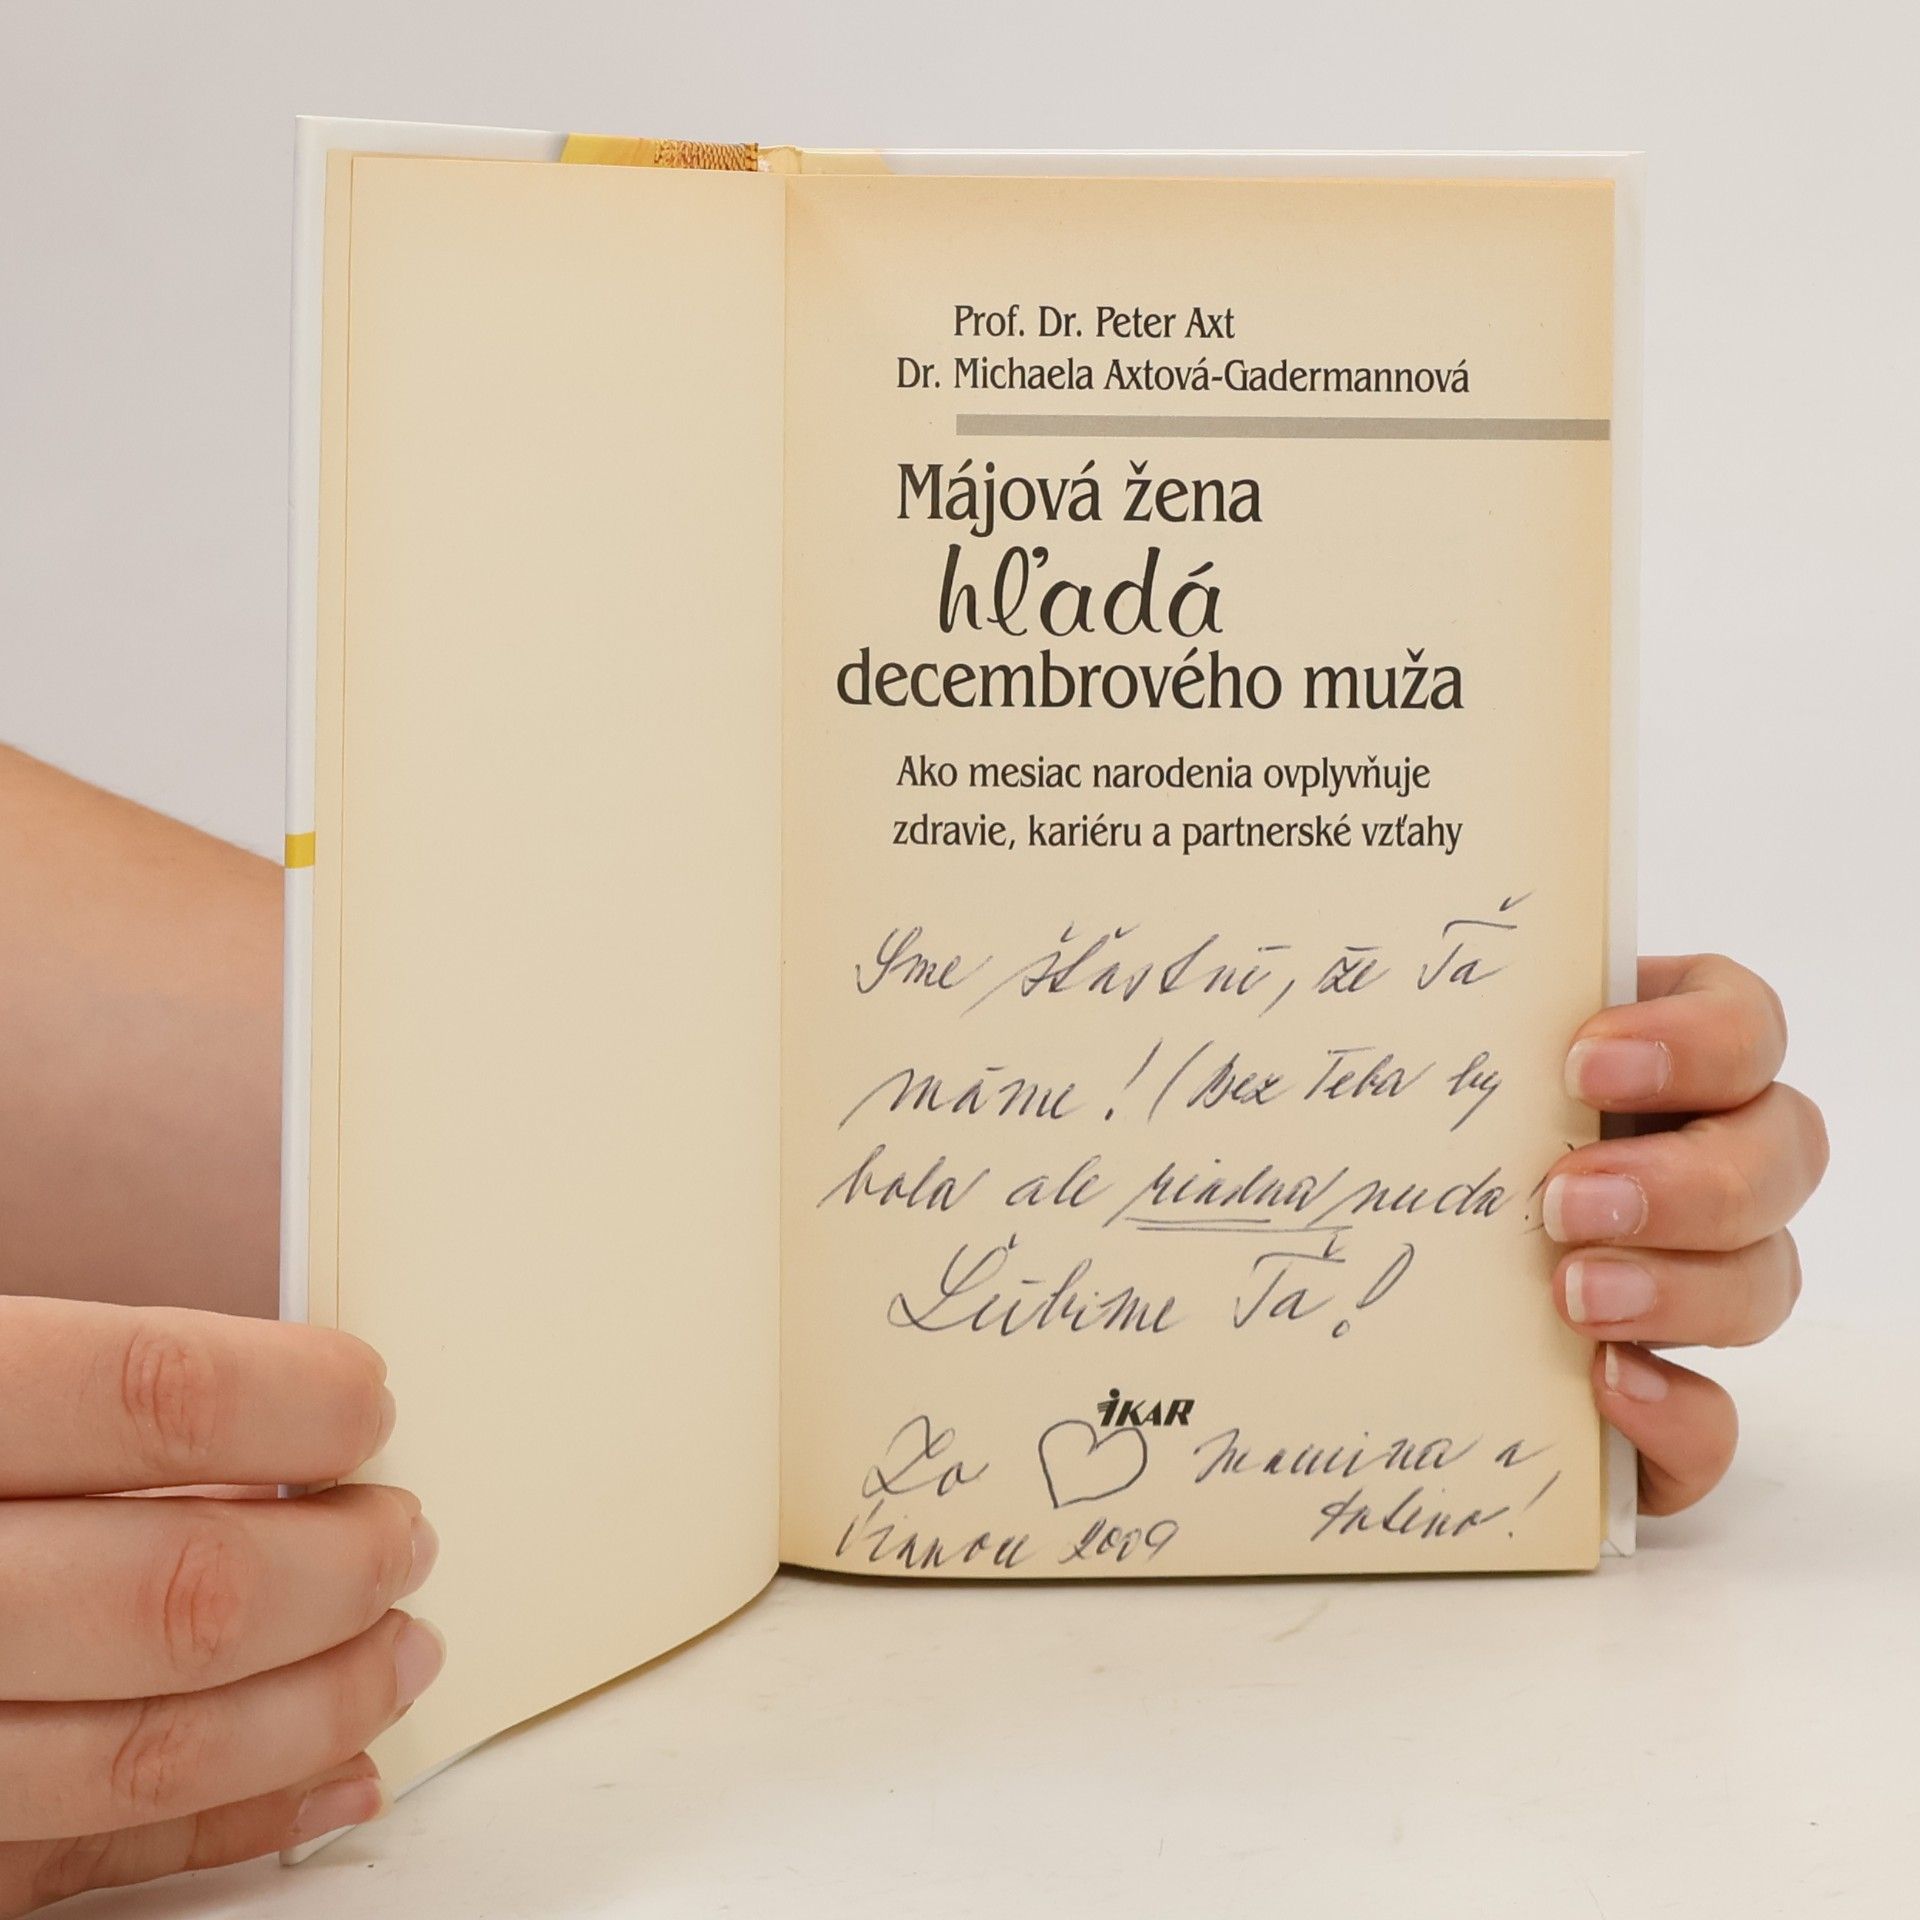 Prof. Dr. Peter Axt
Dr. Michaela Axtová-Gadermannová
Májová žena
hľadá
decembrového muža
Ako mesiac narodenia ovplyvňuje
zdravie, kariéru a partnerské vzťahy
Sme šťastní, že Ťa
máme! (Bez Teba by
bola ale riadna nuda!)
Ľúbime Ťa!
IKAR
Zo ♡ mamina a
tatino!
Vianoce 2009